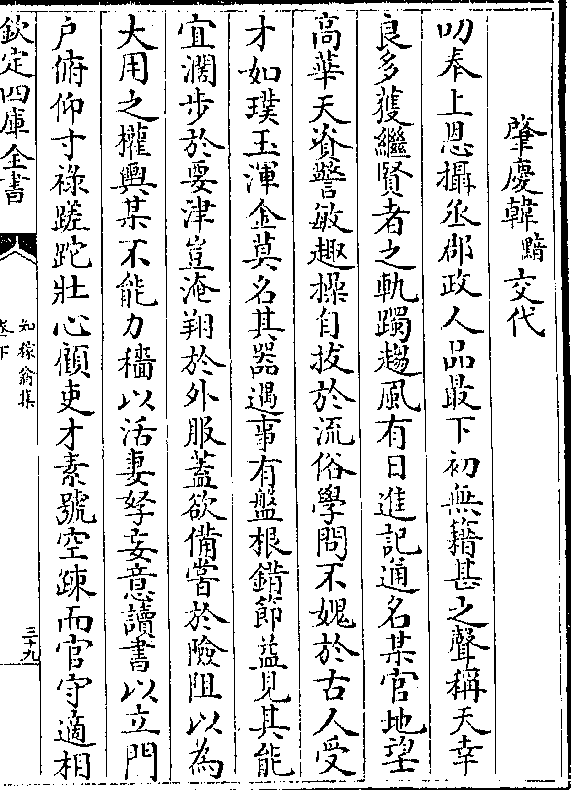 肇慶韓黯交代
叨奉上恩攝丞郡政人品最下初無籍甚之聲稱天幸
良多獲繼賢者之軌躅趨風有日進記通名某官地望
高華天資警敏趣操自拔於流俗學問不媿於古人受
才如璞玉渾金莫名其器遇事有盤根錯節益見其能
宜濶步於要津豈淹翔於外服蓋欲備嘗於險阻以為
大用之權輿某不能力穡以活妻孥妄意讀書以立門
戶俯仰寸祿蹉跎壯心顧吏才素號空疎而官守適相
欽定四庫全書
知稼翁集
卷下
三十九